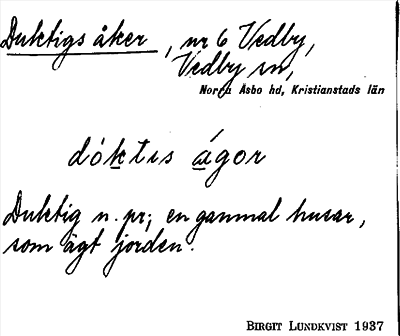 Duktigs åker, nr 6 Vedby,
Vedby sn,
Norra Åsbo hd, Kristianstads län
dóktis ágor
Duktig n. pr; en gammal husar,
som ägt jorden.
BIRGIT LUNDKVIST 1937